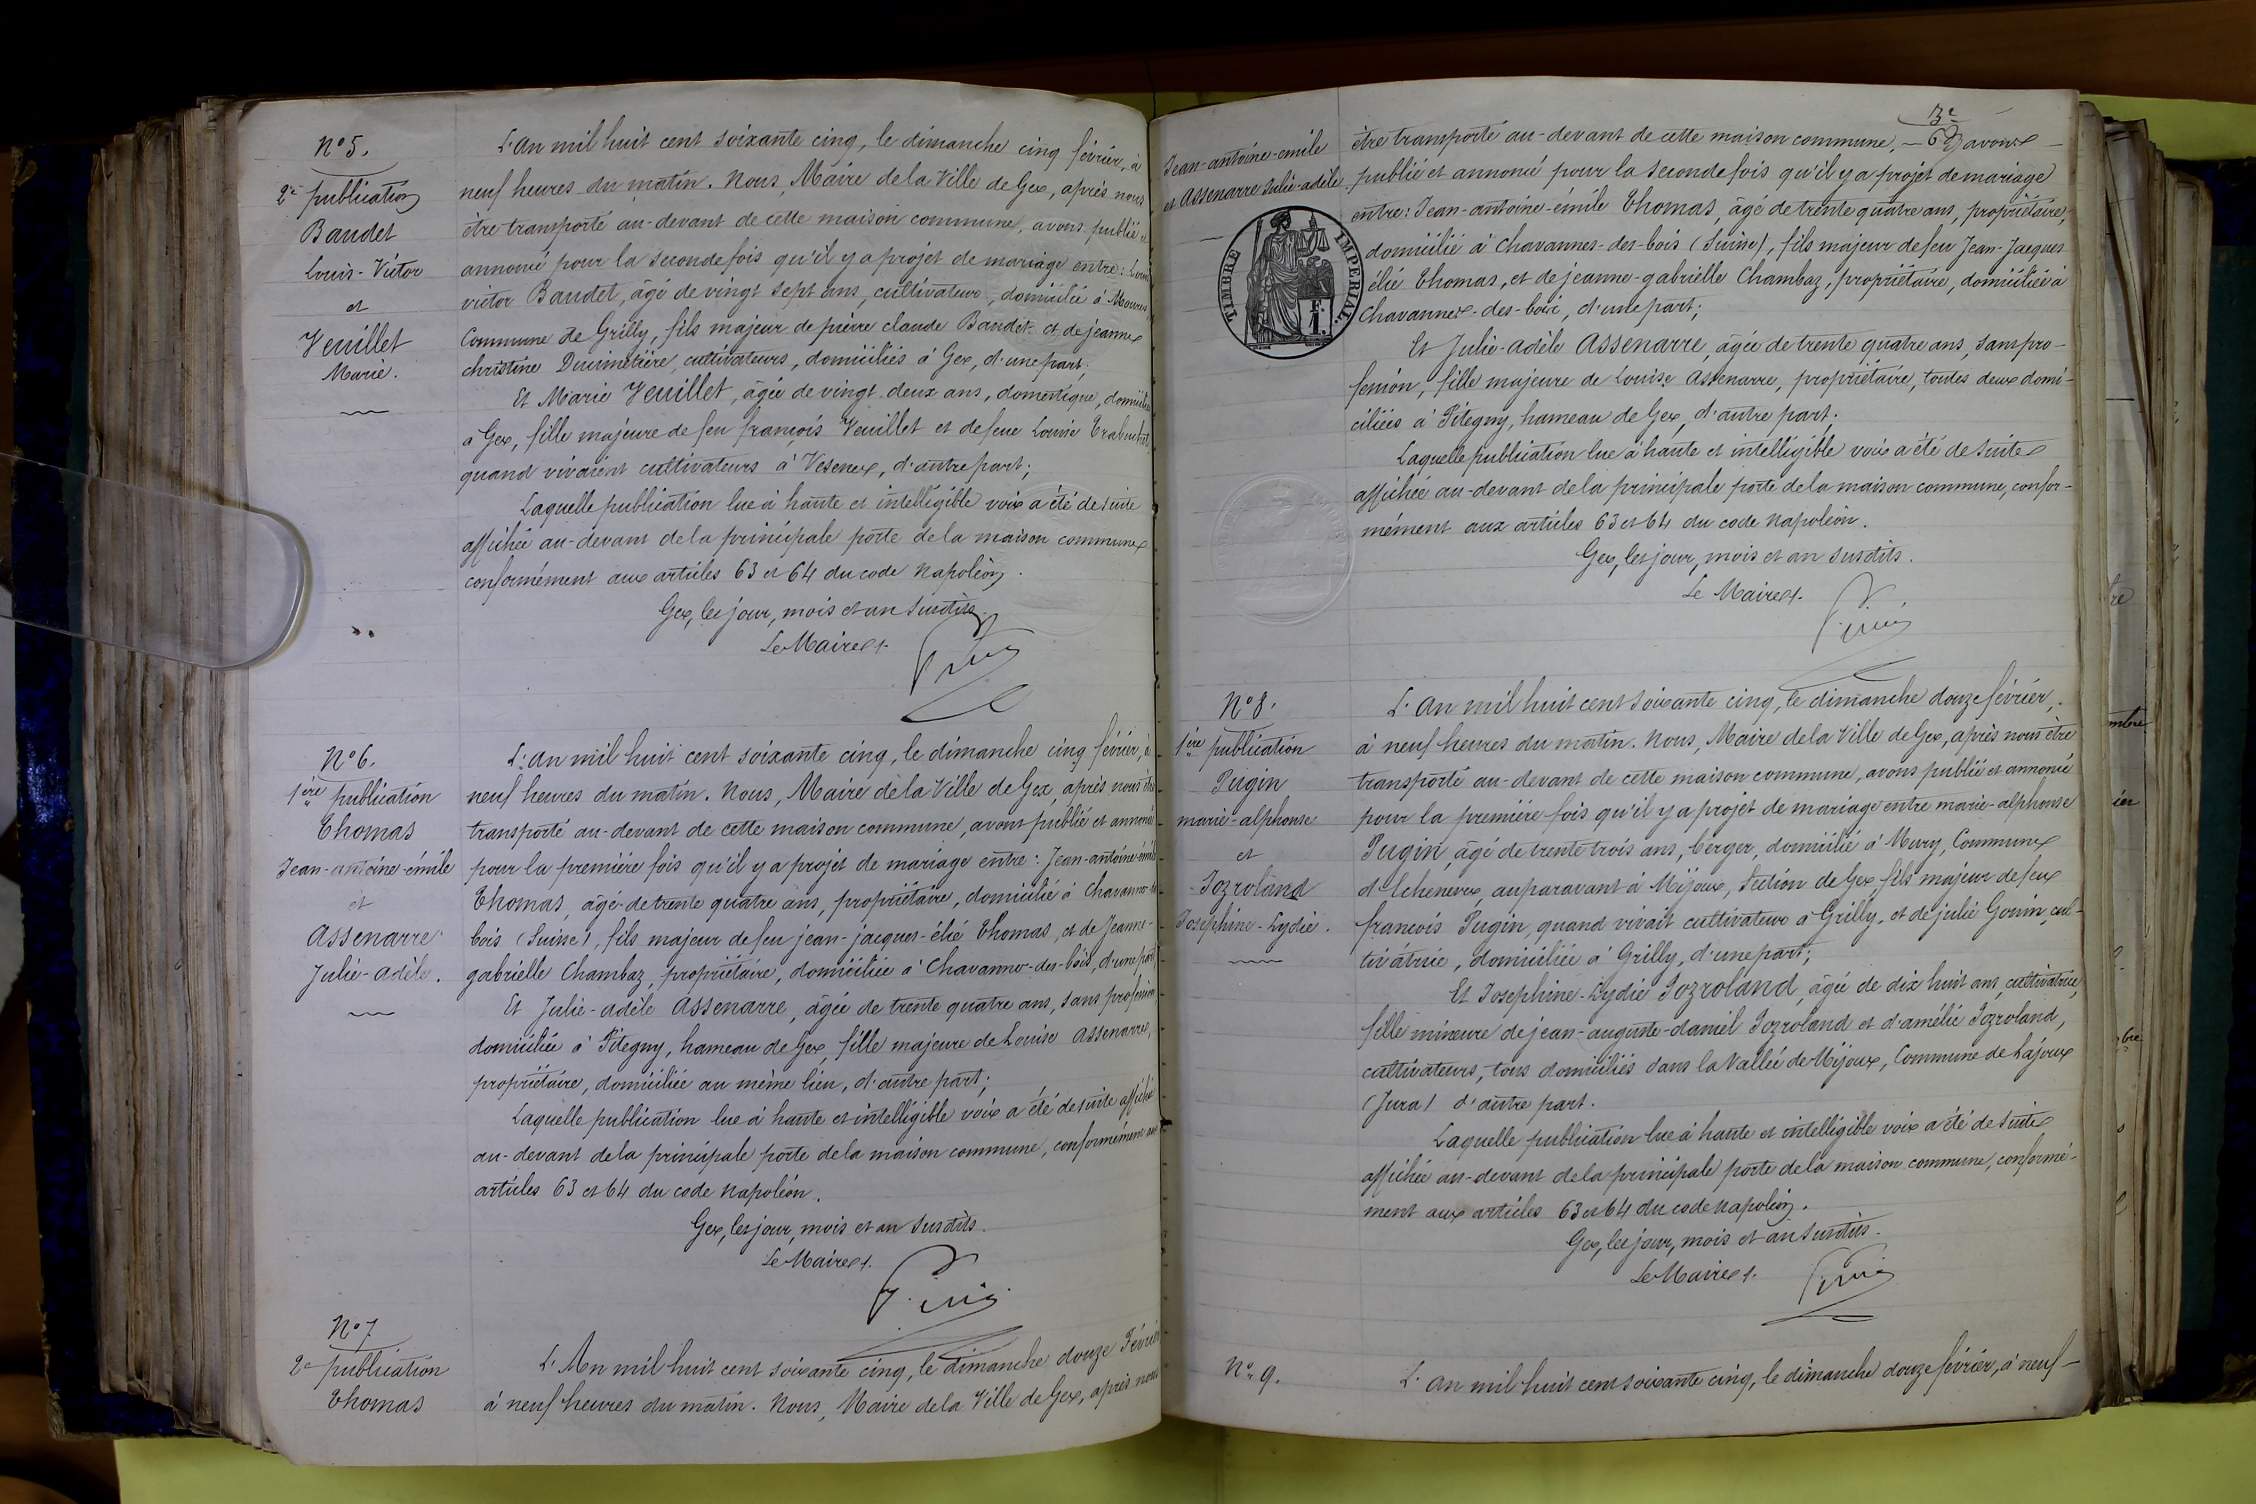 N° 5.
2e publication
Baudet
Louis-Victor
et
Veuillet
Marie.
L'an mil huit cent soixante cinq, le dimanche cinq février, à
neuf heures du matin. Nous, Maire de la Ville de Gex, après nous
être transporté au-devant de cette maison commune, avons publié et
annoncé pour la seconde fois qu'il y a projet de mariage entre: Louis
victor Baudet, âgé de vingt sept ans, cultivateur, domicilié à
Commune de Grilly, fils majeur de pierre claude Baudet et de jeanne
christine Ducimetière, cultivateurs, domiciliés à Gex, d'une part;
Et Marie Veuillet, âgée de vingt deux ans, domestique, domiciliée
à Gex, fille majeure de feu françois Veuillet et de feue Louise
quand vivaient cultivateurs à Vesenex, d'autre part;
Laquelle publication lue à haute et intelligible voix a été de suite
affichée au-devant de la principale porte de la maison commune
conformément aux articles 63 et 64 du code Napoléon.
Gex, les jour, mois et an susdits.
Le Maire
N° 6.
1ère publication
Thomas
Jean-antoine-émile
et
Assenarre
Julie-adèle.
L'an mil huit cent soixante cinq, le dimanche cinq février, à
neuf heures du matin. Nous, Maire de la Ville de Gex, après nous être
transporté au-devant de cette maison commune, avons publié et annoncé
pour la première fois qu'il y a projet de mariage entre: Jean-antoine-émile
Thomas, âgé de trente quatre ans, propriétaire, domicilié à Chavannes-des-
bois (Suisse), fils majeur de feu jean-jacques-élie Thomas, et de Jeanne-
gabrielle Chambaz, propriétaire, domiciliée à Chavannes-des-bois, d'une part
Et Julie-adèle Assenarre, âgée de trente quatre ans, sans profession
domiciliée à Pitegny, hameau de Gex, fille majeure de Louise Assenarre,
propriétaire, domiciliée au même lieu, d'autre part;
Laquelle publication lue à haute et intelligible voix a été de suite affichée
au-devant de la principale porte de la maison commune, conformément aux
articles 63 et 64 du code Napoléon.
Gex, les jour, mois et an susdits.
Le Maire
N° 7
2e publication
Thomas
L'An mil huit cent soixante cinq, le dimanche douze Février
à neuf heures du matin. Nous, Maire de la Ville de Gex, après nous
3e
Jean-antoine-émile
et Assenarre Julie-adèle
TIMBRE IMPÉRIAL
être transporté au-devant de cette maison commune, avons
publié et annoncé pour la seconde fois qu'il y a projet de mariage
entre: Jean-antoine-émile Thomas, âgé de trente quatre ans, propriétaire,
domicilié à Chavannes-des-bois (Suisse), fils majeur de feu Jean-Jacques
élie Thomas, et de jeanne-gabrielle Chambaz, propriétaire, domiciliée à
Chavannes-des-bois, d'une part;
Et Julie-adèle Assenarre, âgée de trente quatre ans, sans pro-
fession, fille majeure de Louise Assenarre, propriétaire, toutes deux domi-
ciliées à Pitegny, hameau de Gex, d'autre part;
Laquelle publication lue à haute et intelligible voix a été de suite
affichée au-devant de la principale porte de la maison commune, confor-
mément aux articles 63 et 64 du code Napoléon.
Gex, les jour, mois et an susdits.
Le Maire
N° 8.
1ère publication
Pugin
marie-alphonse
et
Jozroland
Josephine-Lydie.
L'an mil huit cent soixante cinq, le dimanche douze février,
à neuf heures du matin. Nous, Maire de la Ville de Gex, après nous être
transporté au-devant de cette maison commune, avons publié et annoncé
pour la première fois qu'il y a projet de mariage entre marie-alphonse
Pugin, âgé de trente trois ans, berger, domicilié à Mury, Commune
d'Echenevex, auparavant à Mijoux, section de Gex, fils majeur de feu
françois Pugin, quand vivait cultivateur à Grilly, et de julie Gonin, cul-
tivatrice, domiciliée à Grilly, d'une part;
Et Josephine-Lydie Jozroland, âgée de dix huit ans, cultivatrice,
fille mineure de jean-auguste-daniel Jozroland et d'amélie Jozroland,
cultivateurs, tous domiciliés dans la Vallée de Mijoux, Commune de Lajoux
(Jura) d'autre part.
Laquelle publication lue à haute et intelligible voix a été de suite
affichée au-devant de la principale porte de la maison commune, conformé-
ment aux articles 63 et 64 du code Napoléon.
Gex, les jour, mois et an susdits.
Le Maire
N° 9.
L'an mil huit cent soixante cinq, le dimanche douze février, à neuf